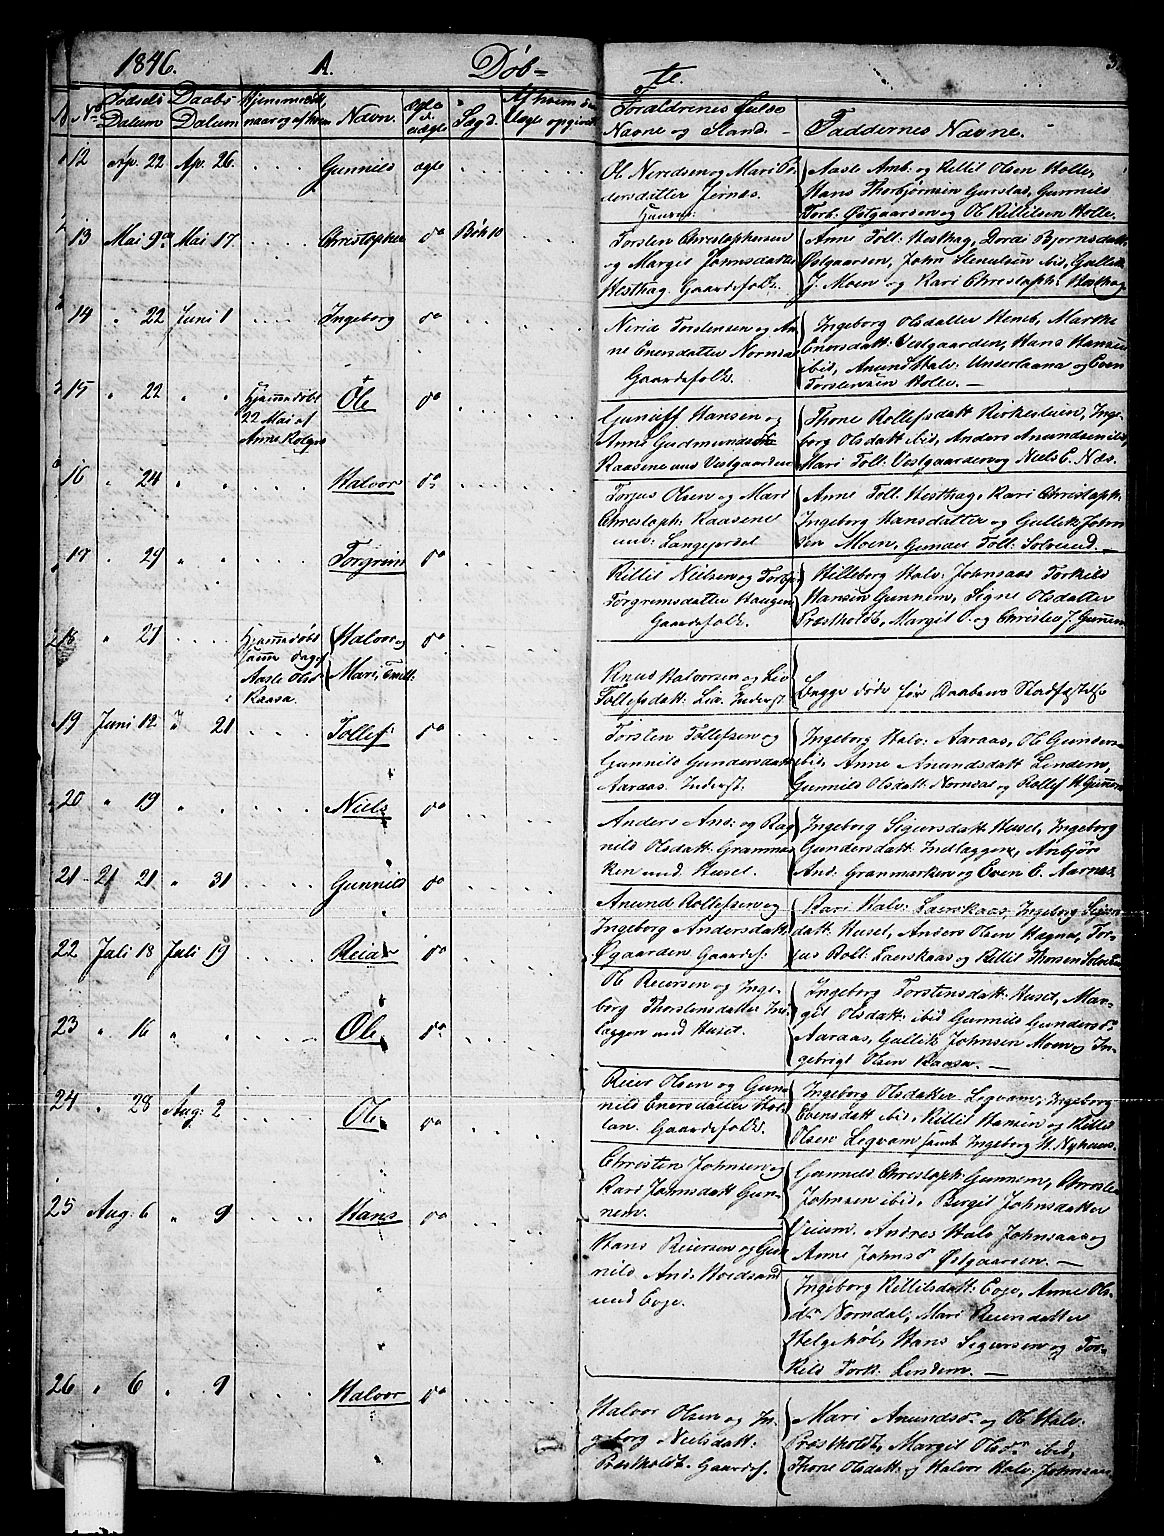 1846. A. Døb-
te.
No Fødsels Datum Daabs Datum Hjemmedøbt, naar og af hvem Navn. Sogd. Af hvem den Uægte opgivet Forældrenes fulde Navne og Stand. Faddernes Navne.
12 Ap. 22 Ap. 26. Gunnild ægte
Ol. Neridsen og Mari
dersdatter Jernæs.
Huusm:
Aasle Amb: og Killil Olsen Holle,
Hans Thorbjørnsen Gurstad, Gunnild
Torb. Østgaarden og Ol Killilsen Holle.
13 Mai 9de Mai 17 Christopher do Bøh 10
Torsten Christophersen
og Margit Johnsdatter
Hesthag. Gaardefolk.
Anne Toll: Hesthag, Dordi Bjørnsdatt:
Østgaarden, John Steneulsen ibid, Gullik
J. Moen og Kari Christoph: Hesthag
14 " 22 Juni 1 Ingeborg do
Nirid Torstensen og An
ne Enersdatter Norndal
Gaardefolk.
Ingeborg Olsdatter Henib, Marthe
Enersdatt: Vestgaarden, Hans Hansen
ibid, Anund Halv: Underlaana og Even
Torstensen Holle. —
15 " 22 " " Hjemmedøbt
22 Mai af
Anne Rolges
Ole do
Guntuff Hansen og
Anne Gudmundsda
Raasene und Vestgaarden
Thone Rollefsdatt Kirkesteien, Inge-
borg Olsdatt ibid, Anders Anundsen ibid,
Mari Toll: Vestgaarden og Niels E. Næs.
16 " 24 " " Halvor do
Torjus Olsen og Mari
Christoph: Raasene
und: Langejordet
Anne Toll: Hesthag, Kari Christoph:
Ingeborg Hansdatter og Gullik John
sen Moen, Gunder Toll: Solverud. —
17 " 24 " " Torgrim do
Killil Nielsen og Torb
Torgrimsdatter Haugen
Gaardefolk.
Hilleborg Halv: Johnsaas Torkild
Hansen Gunnem, Signe Olsdatter
Præstholdt, Margit O. og Christen J. Gunnem
18 " 27 Hjemmedøbt
samme dag af
Aasle Olsd
Raasa
Halvor og
Mari, Tvill: do
Knud Halvorsen og Liv
Tollefsdatt: Lia. Inderst.
Begge døde før Daabens Stadfæstelse
19 Juni 12 J 21 Tollef do
Torsten Tollefsen og
Gunnild Gundersdatt
Aaraas. Inderst.
Ingeborg Halv: Aaraas, Ole Gunders:
ibid, Anne Anundsdatt Lindem,
Gunnild Olsdatt: Norndal og Rollef H Gunnem
20 " 19 " " Niels do
Anders And: og Rag
nild Olsdatt: Granmar
ken und. Huset.
Ingeborg Sigursdatt Huset, Ingeborg
Gundersdatt: Indlaggen, Anbjør
And: Granmarken og Even E. Aarnes.
21 21 21 " 31 Gunnild do
Anund Rollefsen og
Ingeborg Andersdatt:
Øgaarden Gaardef:
Kari Halv: Laerskaas, Ingeborg Sigurs
datt: Huset, Anders Olsen Hagna, Tor-
jus Roll: Laerskaas og Killil Thorsen Solverud
22 Juli 18 Juli 19 Reiar do
Ol Reiersen og Inge-
borg Thorstensdatter Ind
laggen und Huset.
Ingeborg Torstensdatt: Huset, Mar-
git Olsdatt: ibid Gunnild Gundersdr
Aaraas, Gullik Johnsen Moen og In-
gebrigt Olsen Raasa. —
23 " 16 " " Ole do
Reier Olsen og Gun
nild Enersdatter Hal
lan. Gaardefolk.
Ingeborg Olsdatter Legvam, Ingeborg
Evensdatt ibid, Killil Hansen og Killil
Olsen Legvam samt Ingeborg H. Nyhuus.
24 " 28 Aug: 2 Ole do
Christen Johnsen og
Kari Johnsdatt Gun-
nem.
Gunnild Christoph: Gunnem, Christen
Johnsen ibid, Birgit Johnsdatter
Veium, Andres Halv Johnsaas og
Anne Johnsd Østgaarden. —
25 Aug. 6 " 9 Hans do
Hans Reiersen og Gun
nild And: Hvedsand
und Coge.
Ingeborg Killilsdatt: Coge, Anne Ols-
dr Norndal, Mari Reiersdatter
Helgehøl, Hans Sigursen og Tor-
kild Tork: Lindem. —
26 " 6 " 9 Halvor do
Halvor Olsen og In
geborg Nielsdatt:
Præstholdt. Gaardef.
Mari Anundsdr og Ol Halv:
Præstholdt, Margit Olsdr ibid,
Thone Olsdatt: og Halvor Halv: Johnsaas